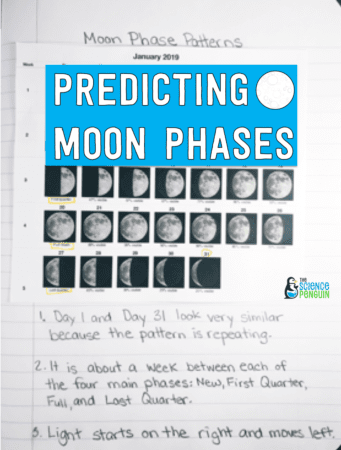 Moon Phase Patterns
January 2019
Week
1
PREDICTING
MOON PHASES
2
3
20 21 22 23 24 25 26
4
27 28 29 30 31
5
THE
SCIENCE
PENGUIN
1. Day 1 and Day 31 look very similar
because the pattern is repeating.
2. It is about a week between each of
the four main phases: New, First Quarter,
Full, and Last Quarter.
3. Light starts on the right and moves left.